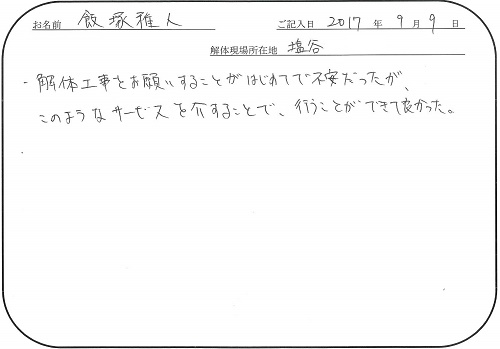 お名前 飯塚雅人 ご記入日 2017 年 9 月 9 日
解体現場所在地 塩谷
・解体工事をお願いすることがはじめてで不安だったが、
このようなサービスを介することで、行うことができて良かった。